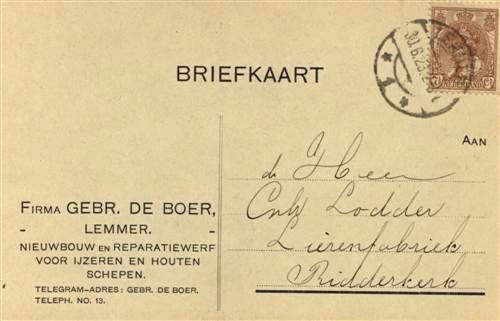 BRIEFKAART
30.6.23
NEDERLAND
AAN
de Heer
Lodder
Lierenfabriek
Ridderkerk
FIRMA GEBR. DE BOER,
- LEMMER. -
NIEUWBOUW EN REPARATIEWERF
VOOR IJZEREN EN HOUTEN
SCHEPEN.
TELEGRAM-ADRES: GEBR. DE BOER.
TELEPH. NO. 13.